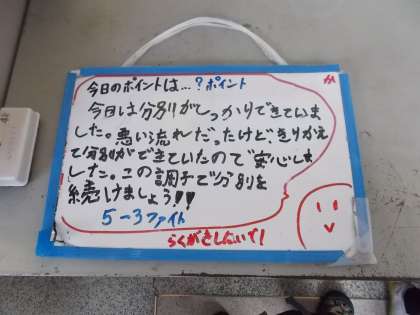 今日のポイントは…?ポイント
今日は分別がしっかりできていま
した。悪い流れだったけど、きりかえ
て分別ができていたので安心しま
した。この調子で分別を
続けましょう!!
5-3ファイト
らくがきしないで!